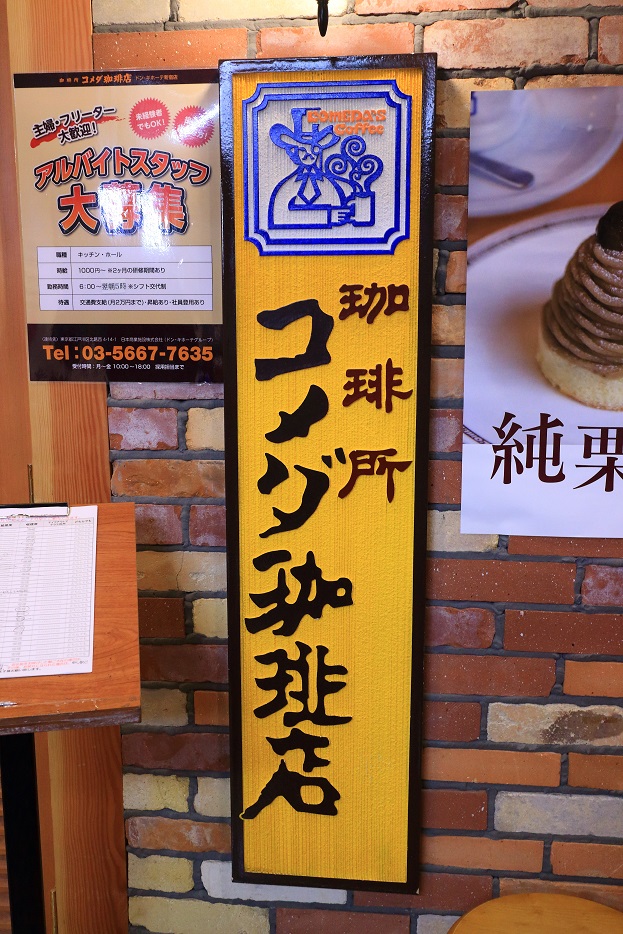 珈琲所 コメダ珈琲店
主婦・フリーター
大歓迎!
未経験者
でもOK!
アルバイトスタッフ
大募集
職種 キッチン・ホール
時給 1000円〜 ※2ヶ月の研修期間あり
勤務時間 6:00〜翌朝5時 ※シフト交代制
待遇 交通費支給(月2万円まで)・昇給あり・社員登用あり
Tel:03-5667-7635
受付時間:月〜金 10:00〜18:00
KOMEDA'S
Coffee
珈琲所
コメダ珈琲店
純栗